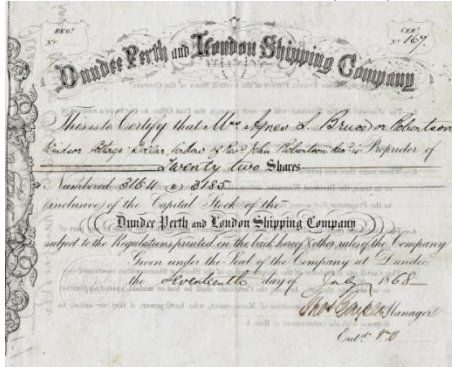 REGD.
No.
CERT.
No. 167.
Dundee Perth and London Shipping Company
This is to Certify that Mrs Agnes L. Bruce or Robertson
Widow of Revd. John Robertson Proprietor of
Twenty two Shares
Numbered 3164 @ 3185
inclusive of the Capital Stock of the
Dundee Perth and London Shipping Company
subject to the Regulations printed on the back hereof & other rules of the Company
Given under the Seal of the Company at Dundee
the Seventeenth day of July 1868
Manager
Entd.